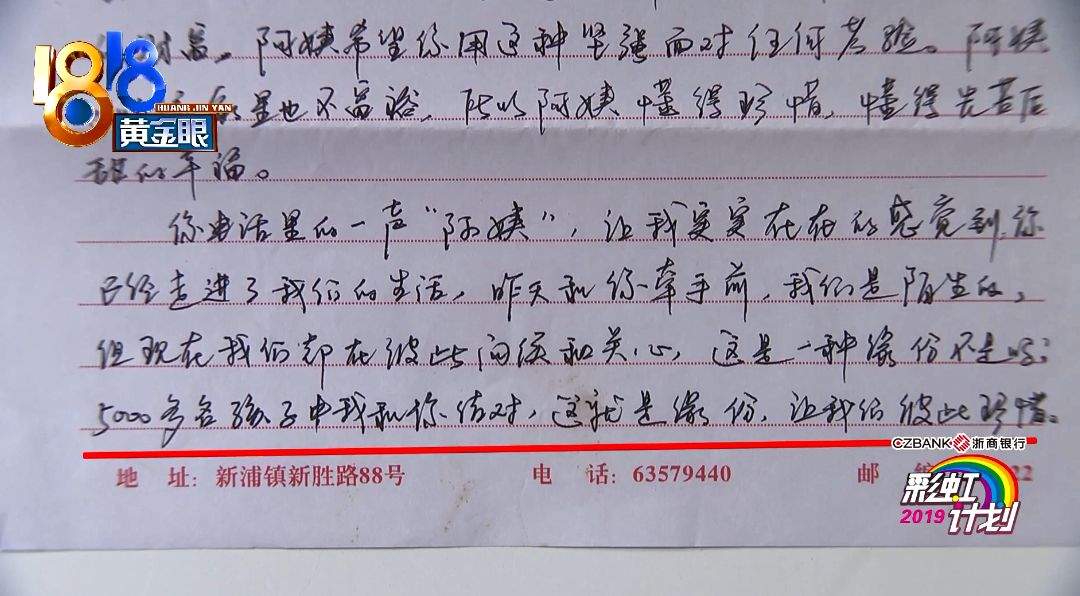 财富。阿姨希望你用这种坚强面对任何考验。阿姨
1818
HUANG JIN YAN
黄金眼
里也不富裕,所以阿姨懂得珍惜,懂得先苦后
甜的幸福。
你电话里的一声“阿姨”,让我实实在在的感觉到,你
已经走进了我们的生活,昨天和你牵手前,我们是陌生的,
但现在我们却在彼此问候和关心,这是一种缘份不是吗?
5000多名孩子中我和你结对,这就是缘份,让我们彼此珍惜。
CZBANK 浙商银行
地 址:新浦镇新胜路88号 电 话:63579440 邮
彩虹
2019 计划